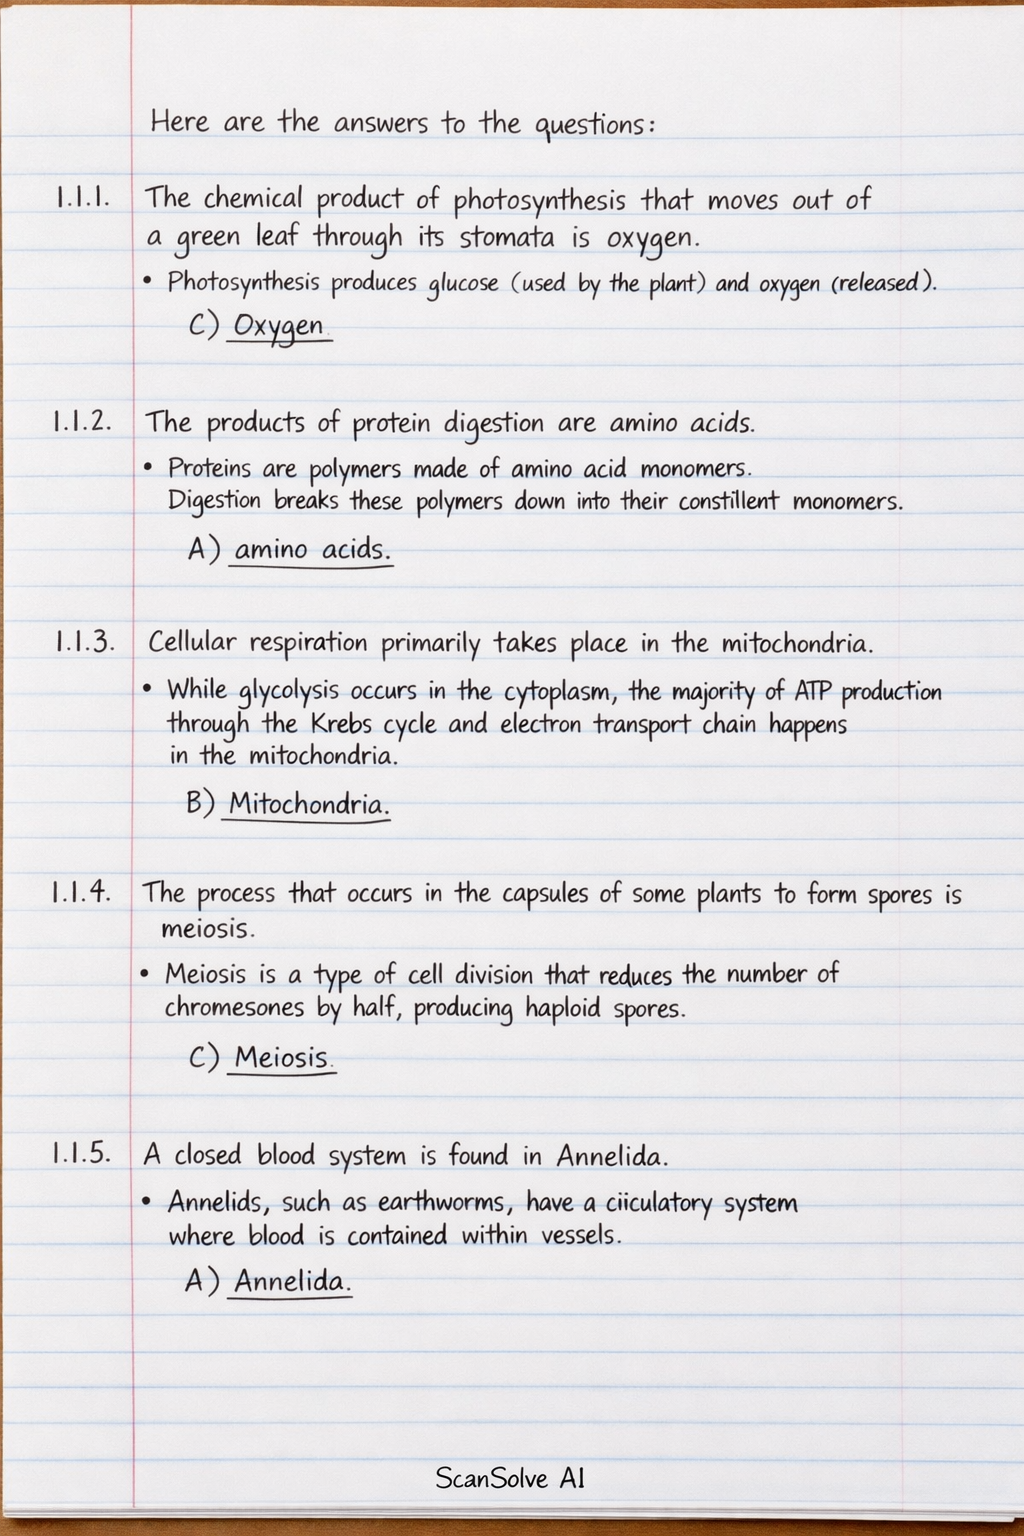 Here are the answers to the questions:
1.1.1. The chemical product of photosynthesis that moves out of
a green leaf through its stomata is oxygen.
• Photosynthesis produces glucose (used by the plant) and oxygen (released).
C) Oxygen.
1.1.2. The products of protein digestion are amino acids.
• Proteins are polymers made of amino acid monomers.
Digestion breaks these polymers down into their constillent monomers.
A) amino acids.
1.1.3. Cellular respiration primarily takes place in the mitochondria.
• While glycolysis occurs in the cytoplasm, the majority of ATP production
through the Krebs cycle and electron transport chain happens
in the mitochondria.
B) Mitochondria.
1.1.4. The process that occurs in the capsules of some plants to form spores is
meiosis.
• Meiosis is a type of cell division that reduces the number of
chromesones by half, producing haploid spores.
C) Meiosis.
1.1.5. A closed blood system is found in Annelida.
• Annelids, such as earthworms, have a ciiculatory system
where blood is contained within vessels.
A) Annelida.
ScanSolve AI